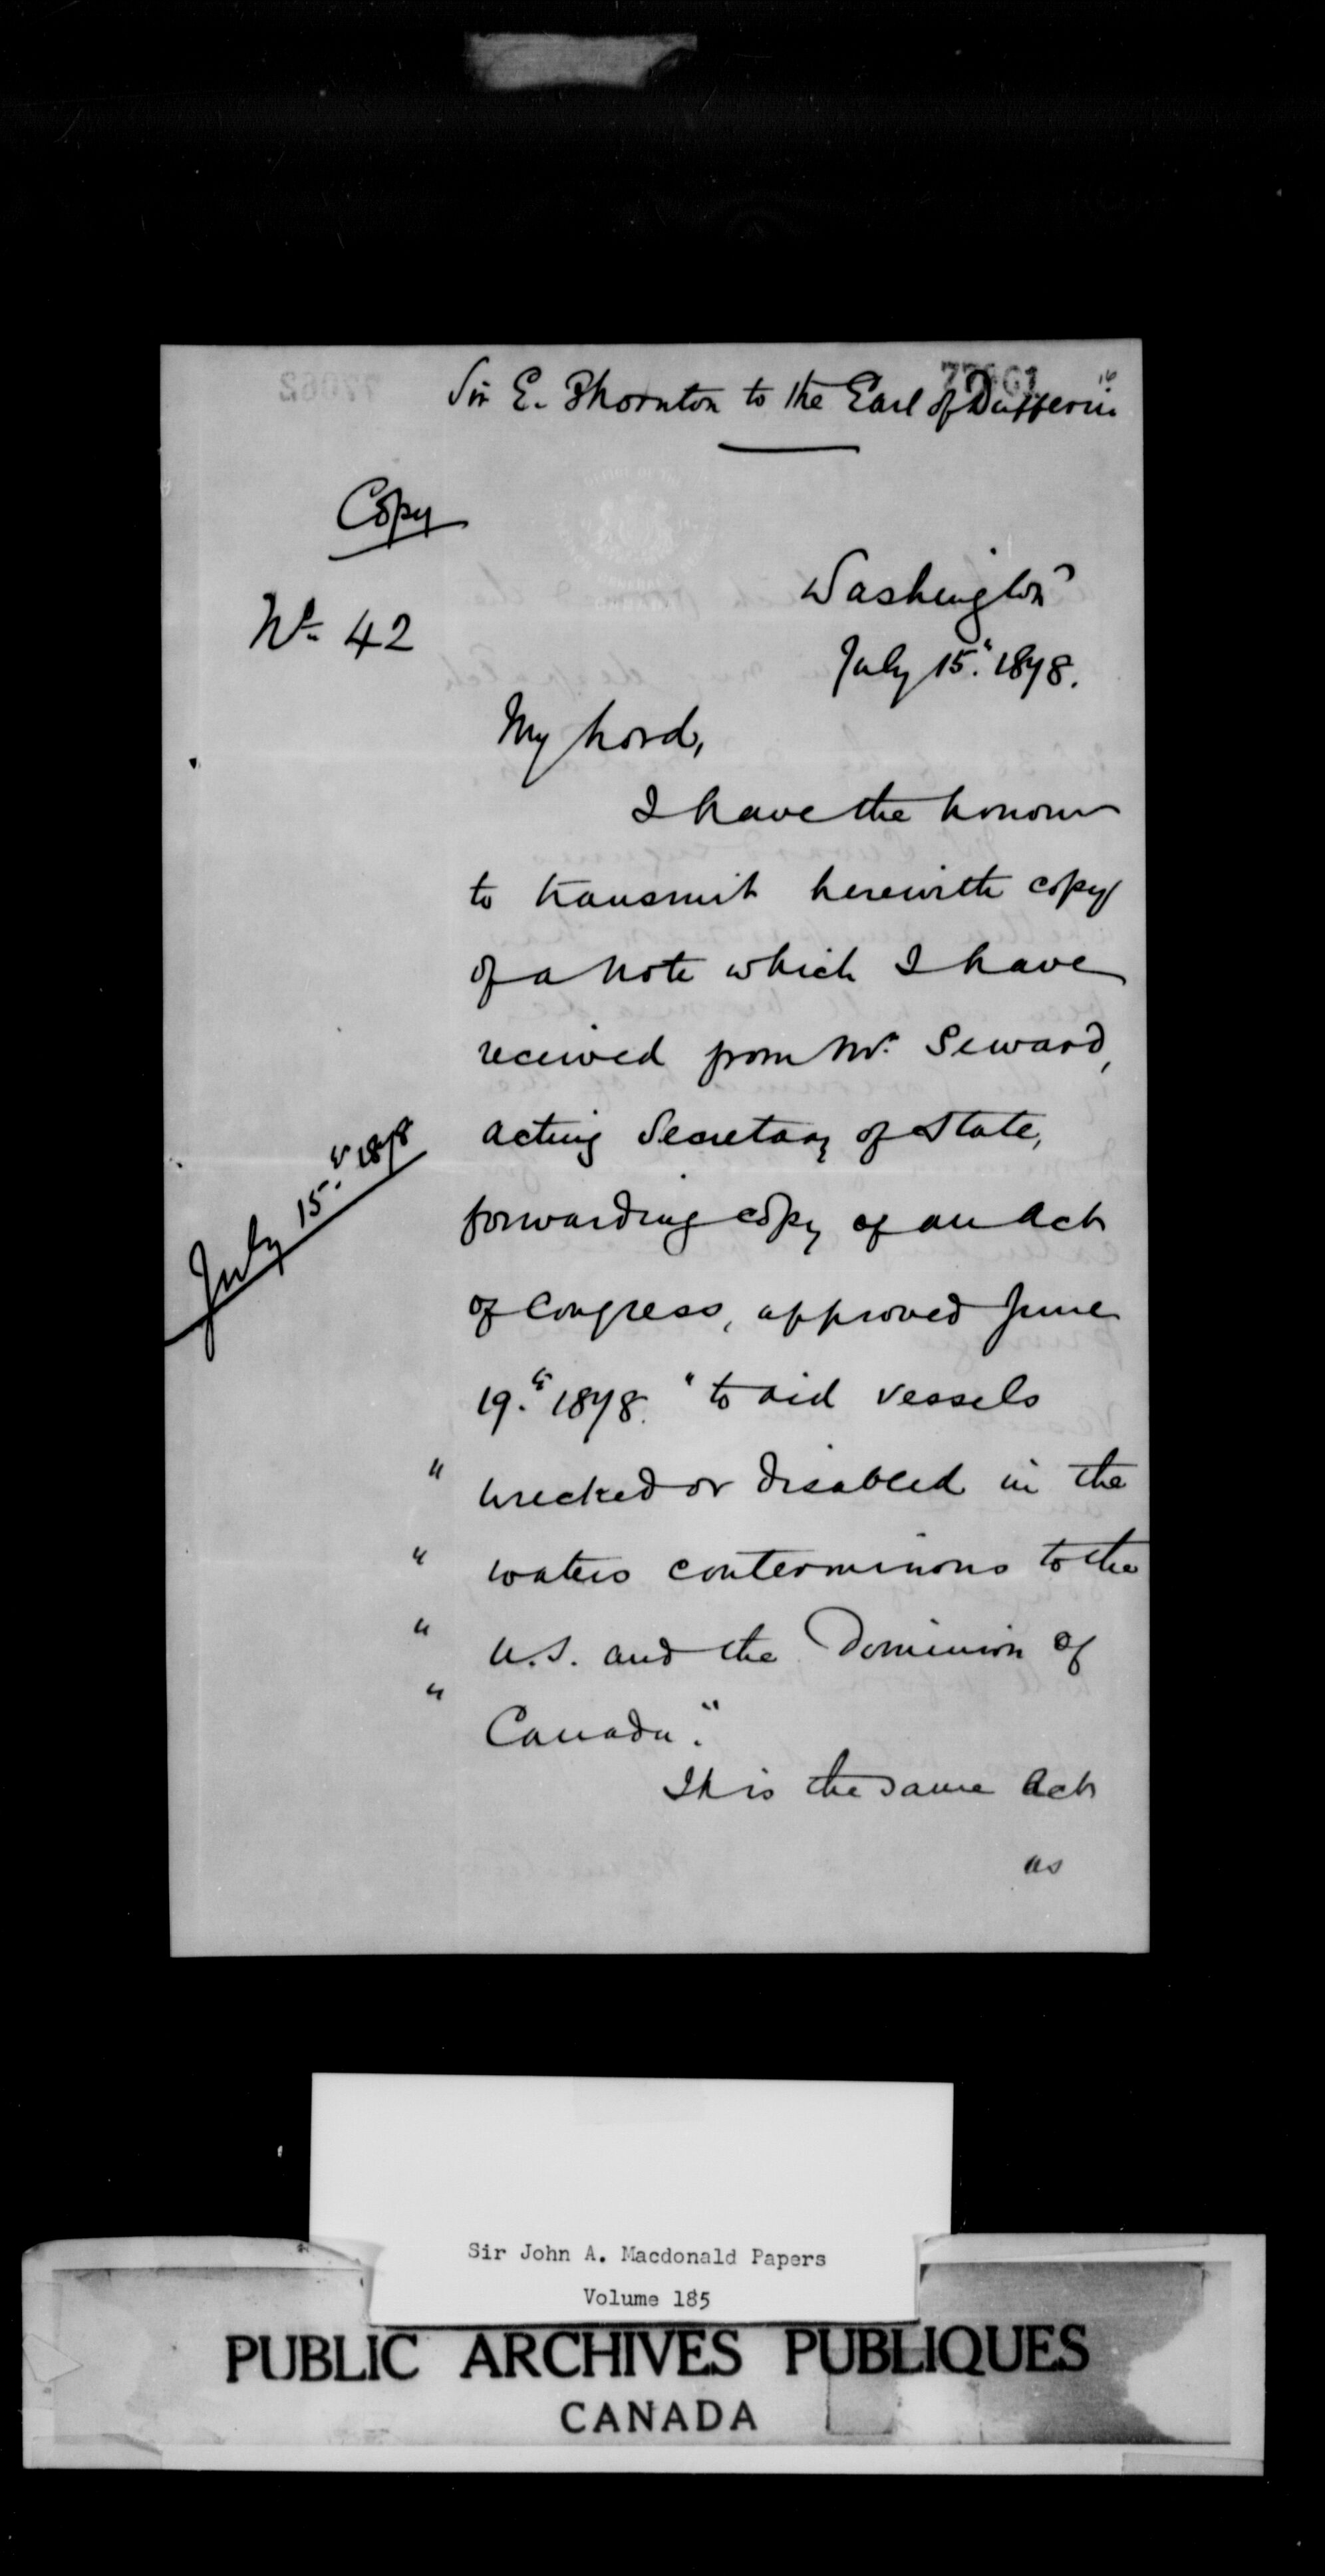 77061
16
Sir E. Thornton to the Earl of Dufferin
Copy
Washington
No. 42
July 15th 1878.
My Lord,
I have the honour
to transmit herewith copy
of a note which I have
received from Mr. Seward,
acting Secretary of State,
July 15th 1878
forwarding copy of an Act
of Congress, approved June
19th 1878. "to aid vessels
" wrecked or disabled in the
" waters conterminous to the
" U.S. and the Dominion of
" Canada."
It is the same Act
as
Sir John A. Macdonald Papers
Volume 185
PUBLIC ARCHIVES PUBLIQUES
CANADA